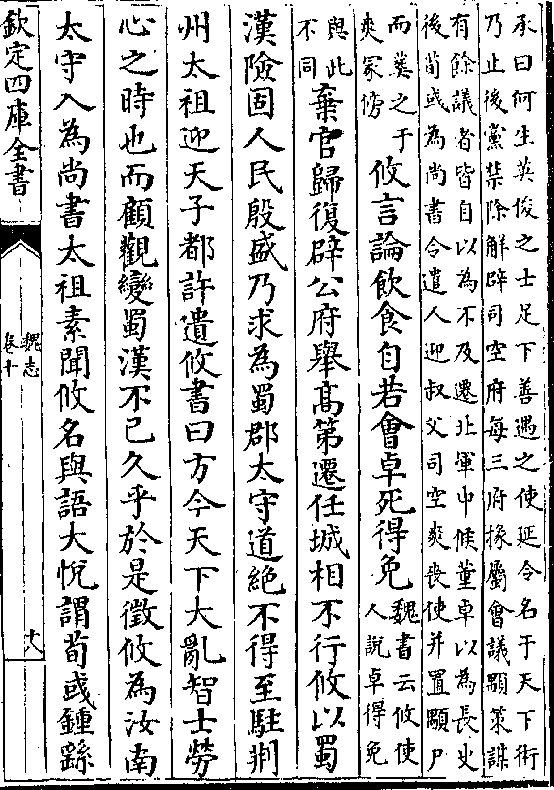 承曰何生英俊之士足下善遇之使延令名于天下術
乃止後黨禁除解辟司空府每三府掾屬會議顒策謀
有餘議者皆自以為不及遷北軍中候董卓以為長史
後荀彧為尚書令遣人迎叔父司空爽喪使并置顒尸
而葬之于
爽冢傍
攸言論飲食自若會卓死得免
魏書云攸使
人說卓得免
與此
不同
棄官歸復辟公府舉高第遷任城相不行攸以蜀
漢險固人民殷盛乃求為蜀郡太守道絶不得至駐荆
州太祖迎天子都許遺攸書曰方今天下大亂智士勞
心之時也而顧觀變蜀漢不已久乎於是徵攸為汝南
太守入為尚書太祖素聞攸名與語大悅謂荀彧鍾繇
欽定四庫全書
魏志
卷十
十八